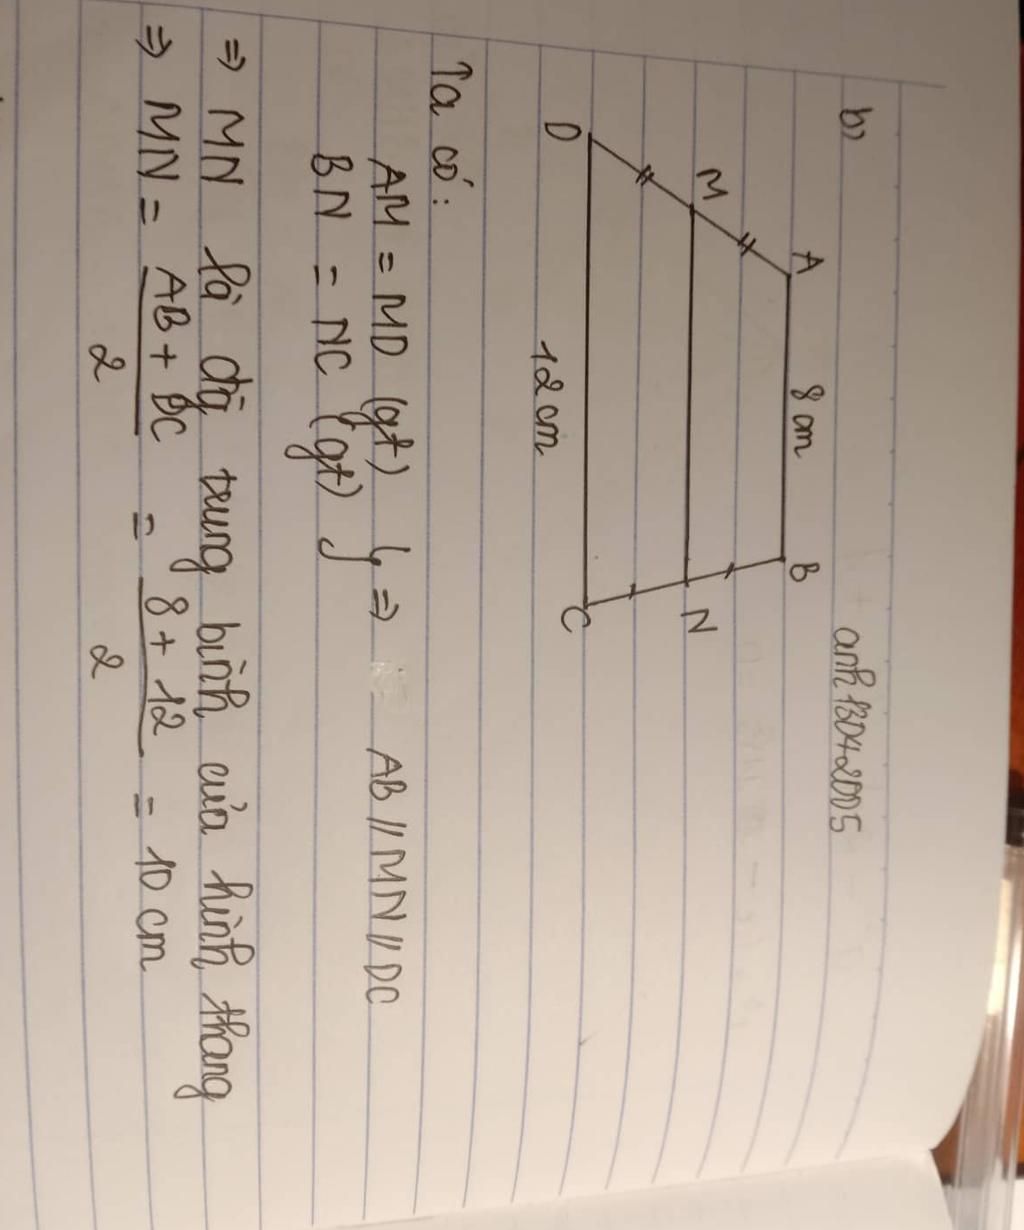 b)
anh13042005
A 8 cm B
M N
D 12 cm C
Ta có:
AM = MD (gt)
BN = NC (gt) } => AB // MN // DC
=> MN là đg trung bình của hình thang
=> MN = AB + DC / 2 = 8 + 12 / 2 = 10 cm